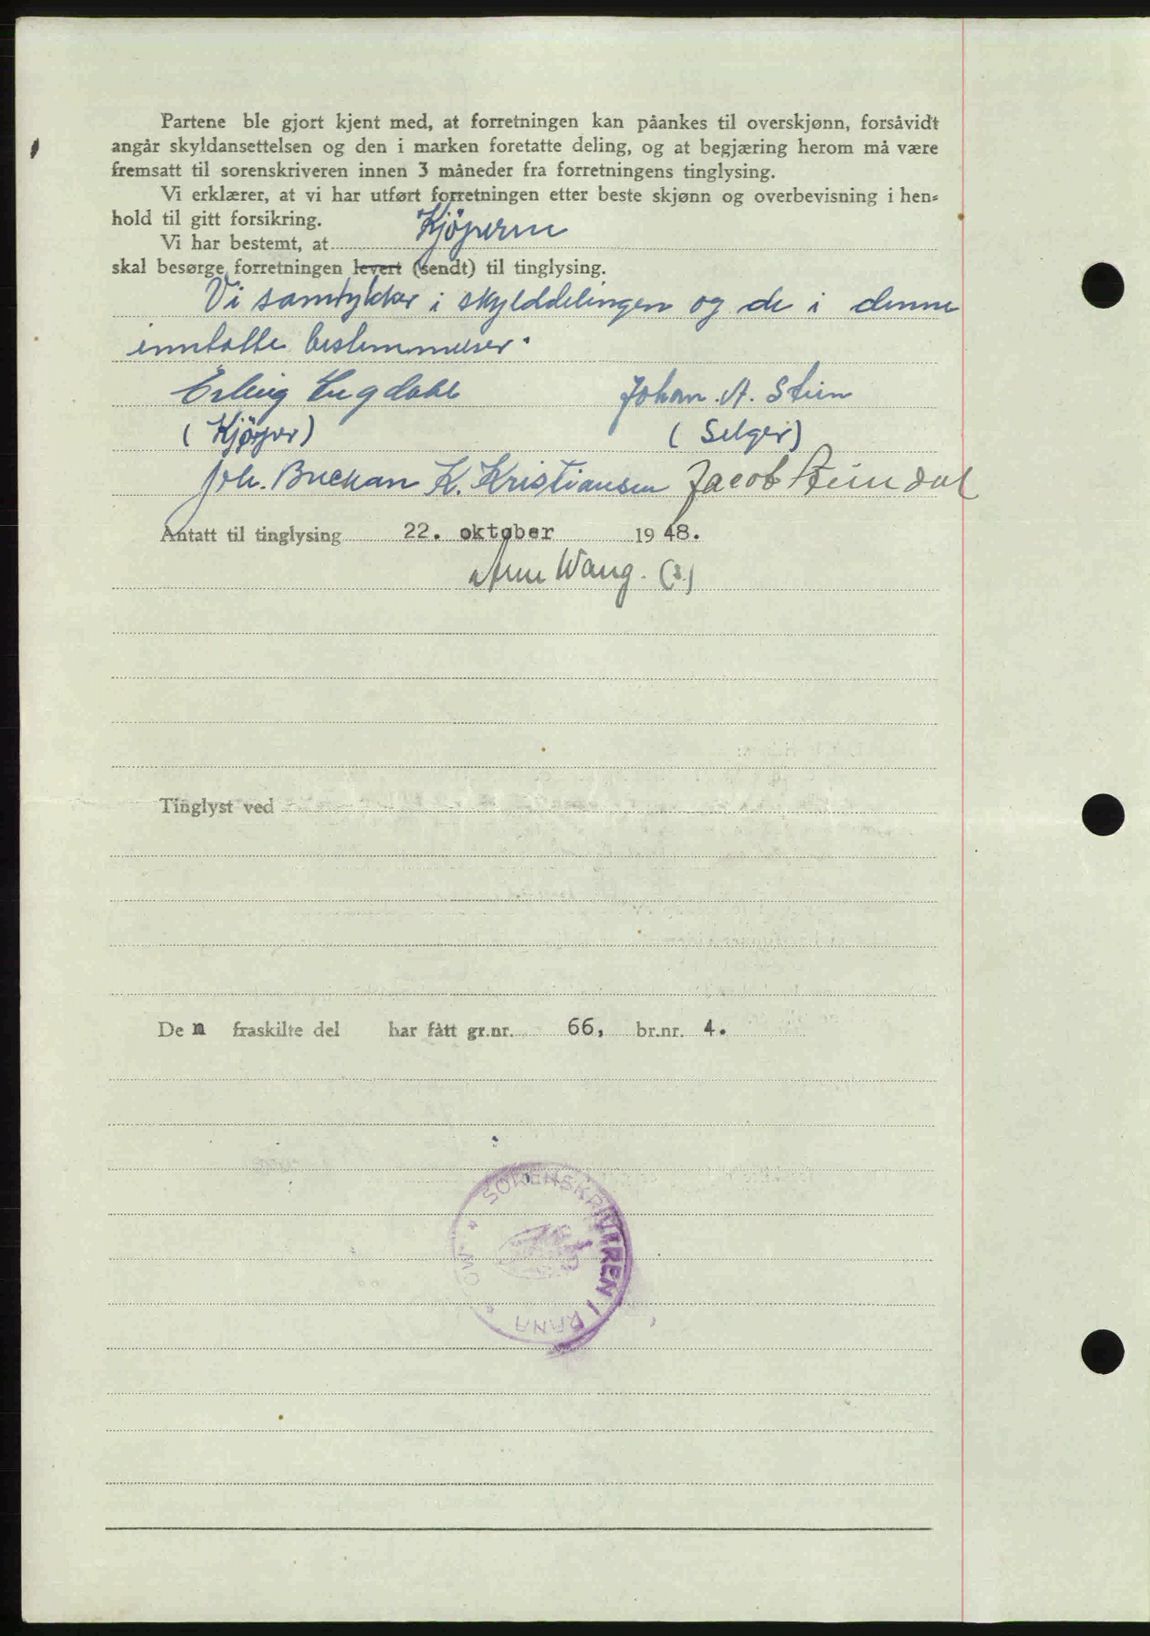 Partene ble gjort kjent med, at forretningen kan påankes til overskjønn, forsåvidt
angår skyldansettelsen og den i marken foretatte deling, og at begjæring herom må være
fremsatt til sorenskriveren innen 3 måneder fra forretningens tinglysing.
Vi erklærer, at vi har utført forretningen etter beste skjønn og overbevisning i hen-
hold til gitt forsikring.
Vi har bestemt, at Kjöperen
skal besørge forretningen levert (sendt) til tinglysing.
Vi samtykker i skylddelingen og de i denne
inntatte bestemmelser.
Erling Johan. A. Stien
(Kjøper) (Selger)
Joh. K. Kristiansen Jacob Steindal
Antatt til tinglysing 22. oktober 1948.
Arne Wang. (s.)
Tinglyst ved
Den fraskilte del har fått gr.nr. 66, br.nr. 4.
SORENSKRIVEREN I RANA